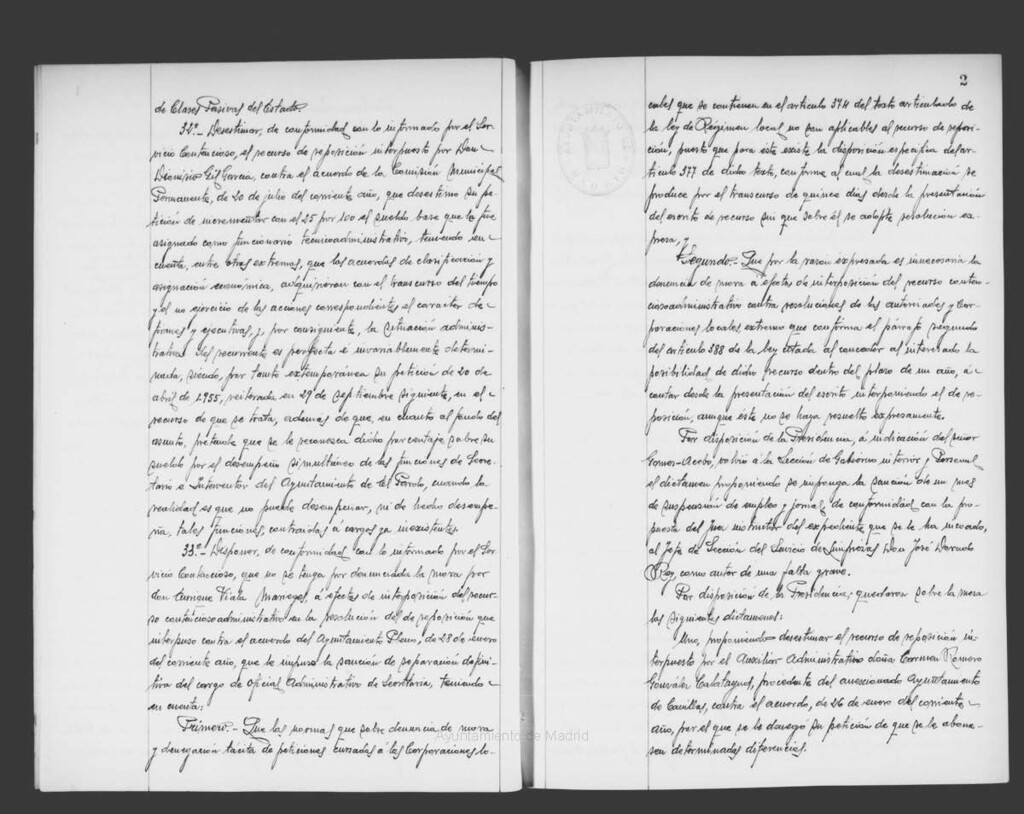 de Clases Pasivas del Estado.
32º.- Desestimar, de conformidad con lo informado por el Ser-
vicio Contencioso, el recurso de reposición interpuesto por Don
Dionisio Gil García, contra el acuerdo de la Comisión Municipal
Permanente, de 20 de julio del corriente año, que desestimó su pe-
tición de incrementar con el 25 por 100 el sueldo base que le fue
asignado como funcionario técnicoadministrativo, teniendo en
cuenta, entre otros extremos, que los acuerdos de clasificación y
asignación económica, adquirieron con el transcurso del tiempo
y el no ejercicio de las acciones correspondientes el carácter de
firmes y ejecutivas, y, por consiguiente, la situación adminis-
trativa del recurrente es perfecta é invariablemente determi-
nada, siendo, por tanto extemporánea su petición de 20 de
abril de 1.955, reiterada en 29 de septiembre siguiente, en el
recurso de que se trata, además de que, en cuanto al fondo del
asunto, pretende que se le reconozca dicho porcentaje sobre su
sueldo por el desempeño simultáneo de las funciones de Secre-
tario e Interventor del Ayuntamiento de El Pardo, cuando la
realidad es que no puede desempeñar, ni de hecho desempe-
ña, tales funciones, contraídas á cargos ya inexistentes.
33º.- Disponer, de conformidad con lo informado por el Ser-
vicio Contencioso, que no se tenga por denunciada la mora por
don Enrique Viala Maneges, á efectos de interposición del recur-
so contenciosoadministrativo en la resolución del de reposición que
interpuso contra el acuerdo del Ayuntamiento Pleno, de 28 de enero
del corriente año, que le impuso la sanción de separación defini-
tiva del cargo de Oficial Administrativo de Secretaría, teniendo
en cuenta:
Primero.- Que las normas que sobre denuncia de mora
y denegación tácita de peticiones cursadas á las Corporaciones lo-
2
cales que se contienen en el artículo 374 del texto articulado de
la ley de Régimen local no son aplicables al recurso de reposi-
ción, puesto que para éste existe la disposición específica del ar-
tículo 377 de dicho texto, conforme al cual la desestimación se
produce por el transcurso de quince días desde la presentación
del escrito de recurso sin que sobre él se adopte resolución ex-
presa, y
Segundo.- Que por la razón expresada es innecesaria la
denuncia de mora á efectos de interposición del recurso conten-
ciosoadministrativo contra resoluciones de las autoridades y Cor-
poraciones locales extremo que confirma el párrafo segundo
del artículo 388 de la ley citada al conceder al interesado la
posibilidad de dicho recurso dentro del plazo de un año, á
contar desde la presentación del escrito interponiendo el de re-
posición, aunque éste no se haya resuelto expresamente.
Por disposición de la Presidencia, á indicación del señor
Gomez-Acebo, volvió á la Sección de Gobierno interior y Personal
el dictamen proponiendo se imponga la sanción de un mes
de suspensión de empleo y jornal, de conformidad con la pro-
puesta del Juez instructor del expediente que se le ha incoado,
al Jefe de Sección del Servicio de Limpiezas Don José Dorado
Rey, como autor de una falta grave.
Por disposición de la Presidencia, quedaron sobre la mesa
los siguientes dictámenes:
Uno, proponiendo desestimar el recurso de reposición in-
terpuesto por el Auxiliar Administrativo doña Carmen Romero
González Calatayud, procedente del anexionado Ayuntamiento
de Canillas, contra el acuerdo, de 26 de enero del corriente
año, por el que se le denegó su petición de que se le abona-
sen determinadas diferencias.
Ayuntamiento de Madrid